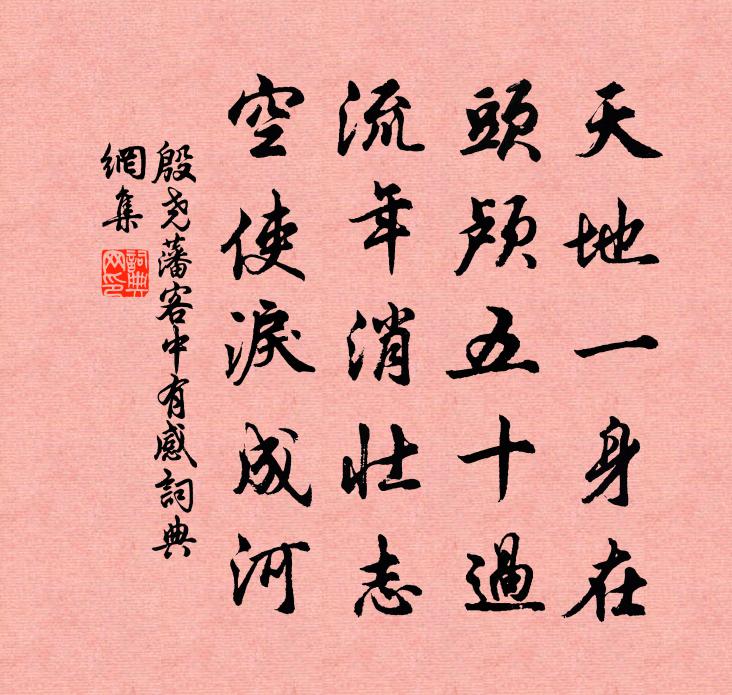 天地一身在
頭颅五十過
流年消壯志
空使淚成河
殷尧藩客中有感詞典
網集
詞典
网印